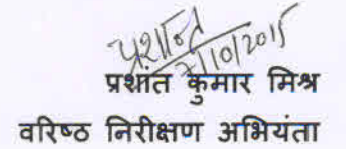 प्रशान्त
7/10/2015
प्रशांत कुमार मिश्र
वरिष्ठ निरीक्षण अभियंता